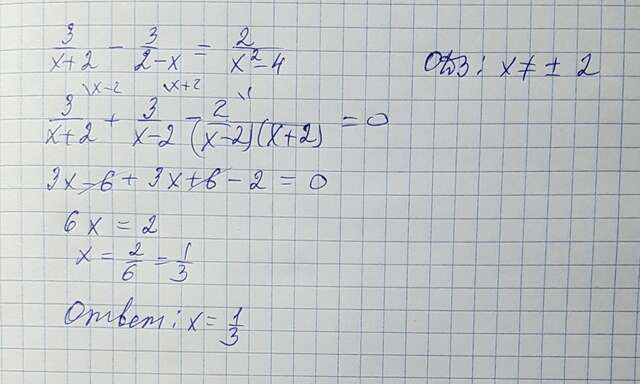 3/(x+2) - 3/(2-x) = 2/(x²-4)
ОДЗ: x ≠ ± 2
3/(x+2) \x-2 + 3/(x-2) \x+2 - 2/((x-2)(x+2)) \1 = 0
3x - 6 + 3x + 6 - 2 = 0
6x = 2
x = 2/6 = 1/3
Ответ: x = 1/3